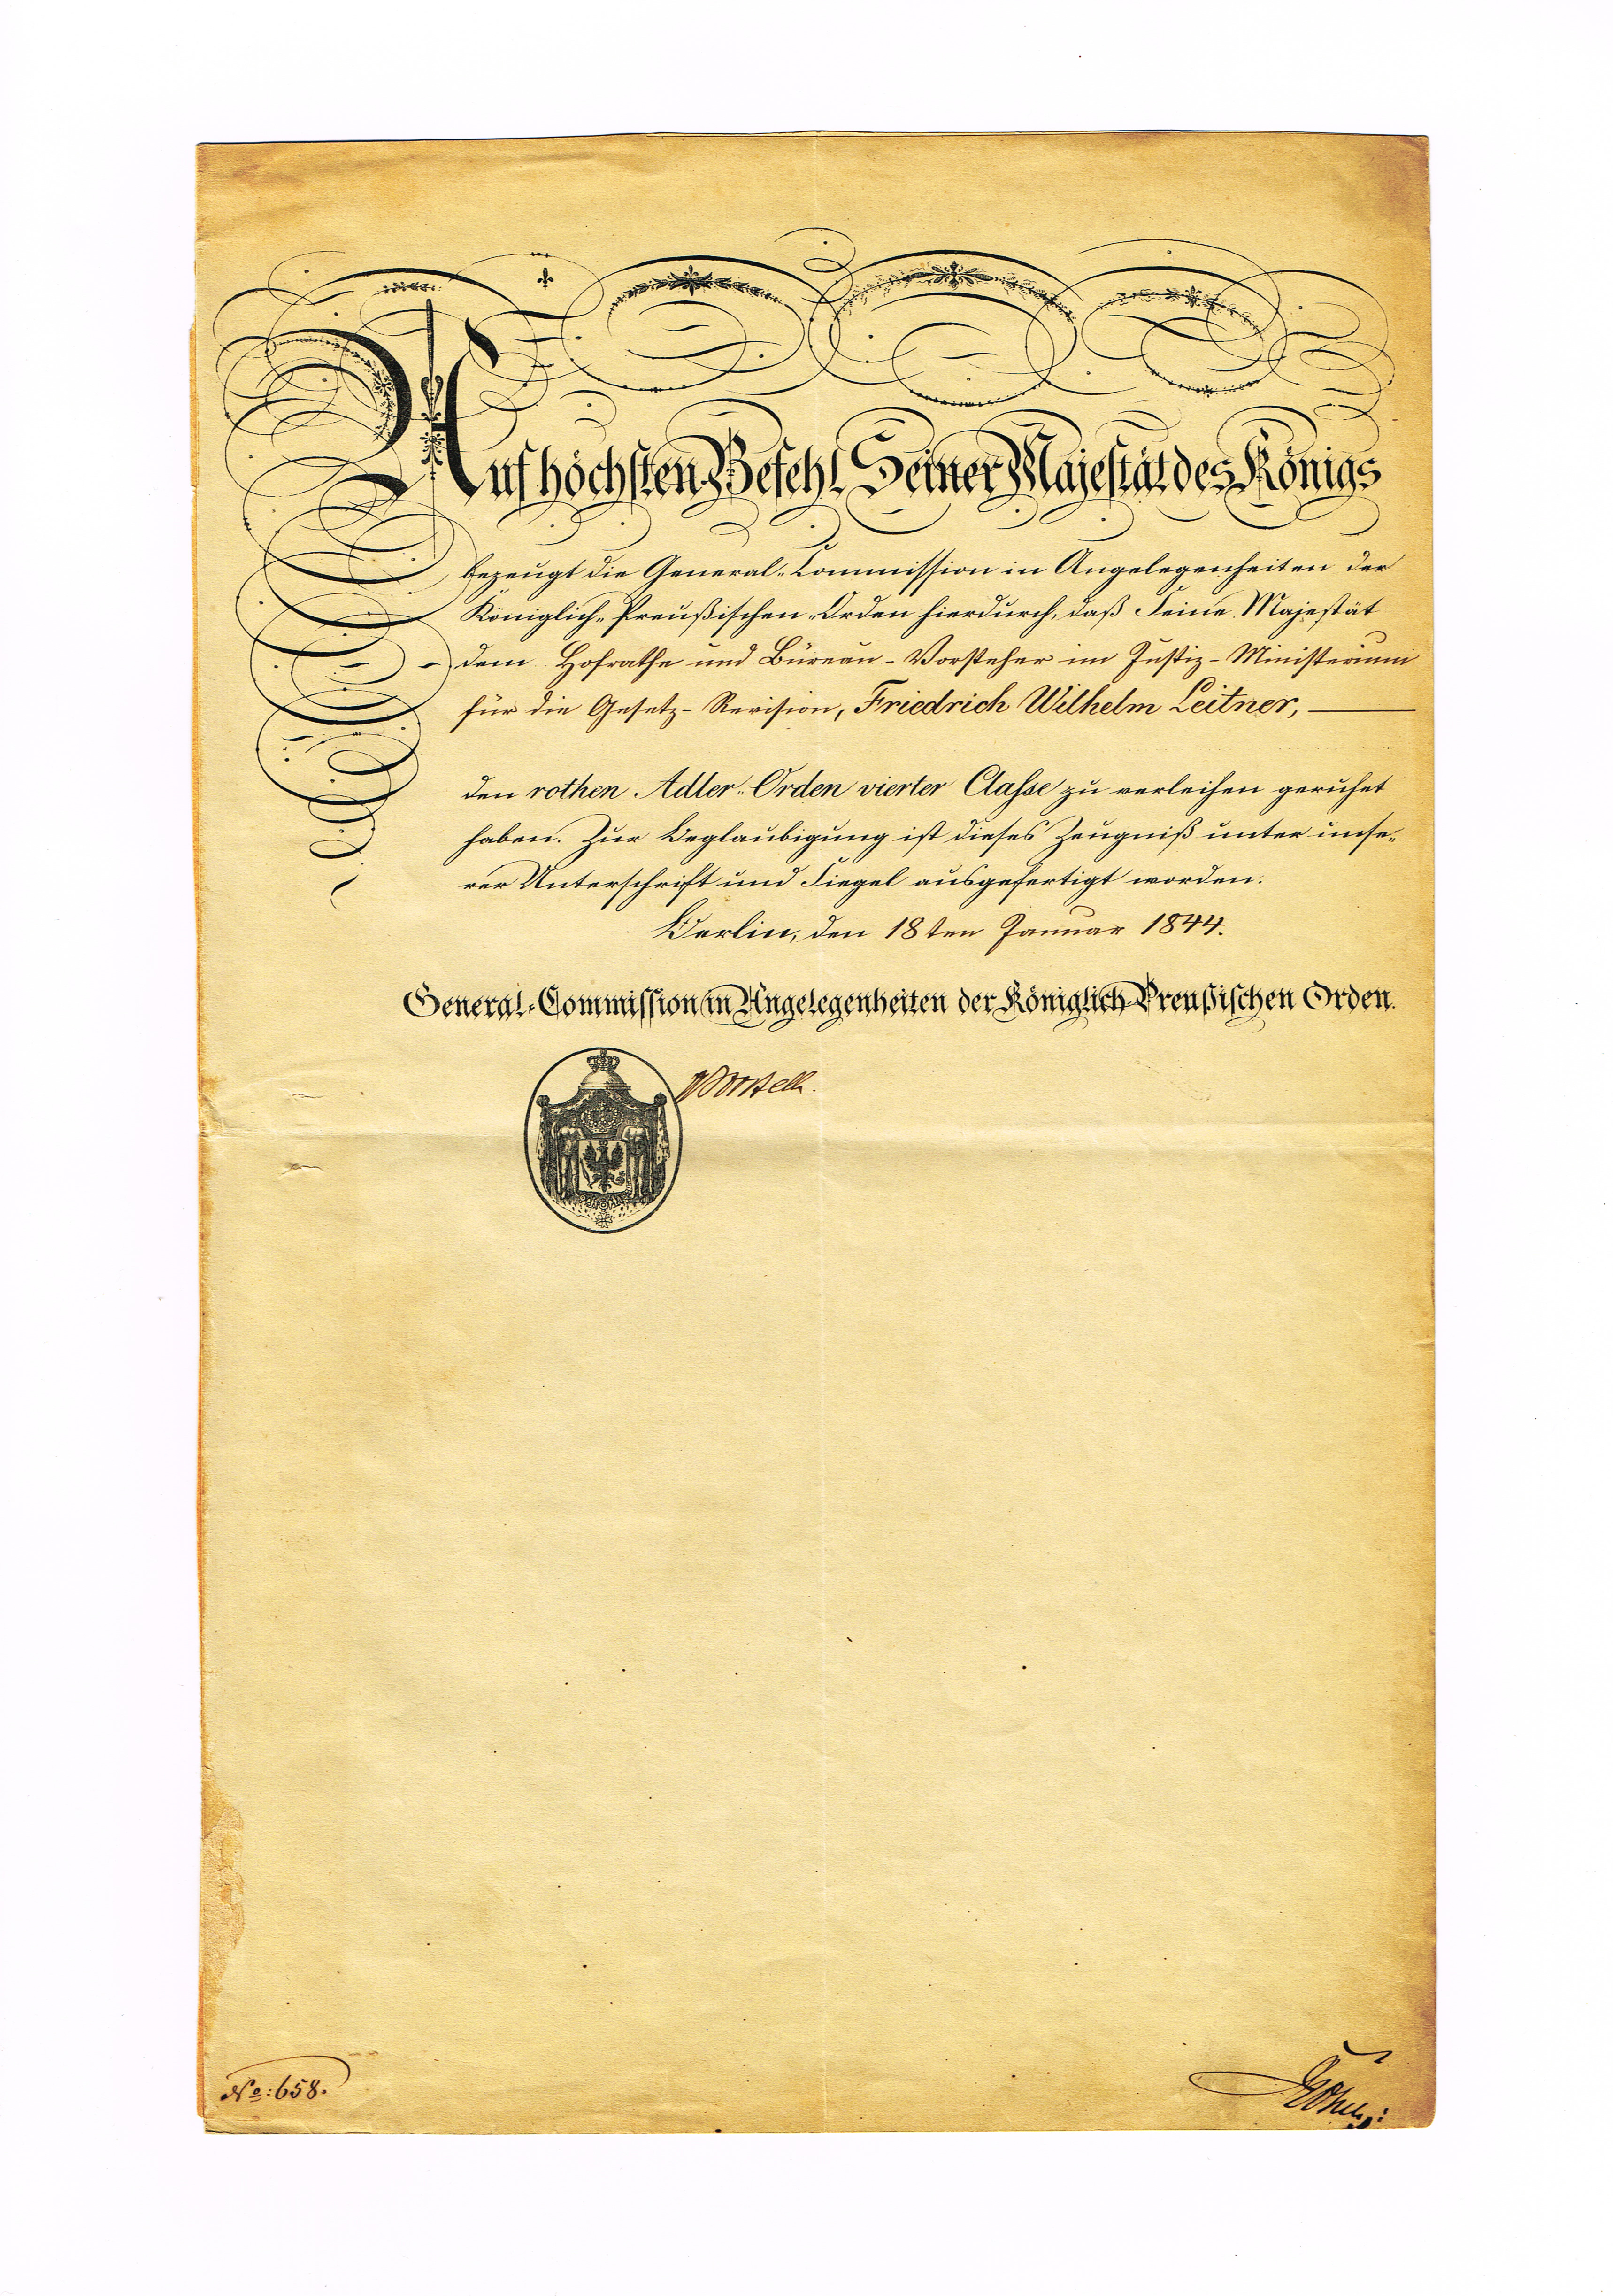 Auf höchsten Befehl Seiner Majestät des Königs
bezeugt die General-Commission in Angelegenheiten der
Königlich-Preußischen-Orden hierdurch, daß Seine Majestät
dem Hofrathe und Büreau-Vorsteher im Justiz-Ministerium
für die Gesetz-Revision, Friedrich Wilhelm Leitner,
den rothen Adler-Orden vierter Classe zu verleihen geruhet
haben. Zur Beglaubigung ist dieses Zeugniß unter unse-
rer Unterschrift und Siegel ausgefertigt worden.
Berlin, den 18ten Januar 1844.
General-Commission in Angelegenheiten der Königlich-Preußischen Orden.
No: 658.